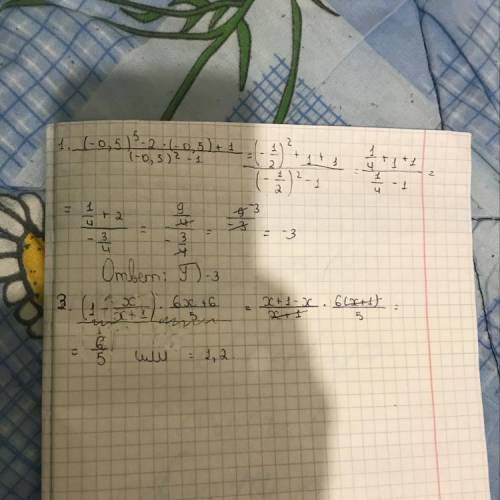 1. ((-0,5)^5 - 2 · (-0,5) + 1)/((-0,5)^2 - 1) = ((-1/2)^2 + 1 + 1)/((-1/2)^2 - 1) = (1/4 + 1 + 1)/(1/4 - 1) =
= (1/4 + 2)/(-3/4) = (9/4)/(-3/4) = 9/-3 = -3
Ответ: Г) -3
3. (1 - x/(x+1)) · (6x+6)/5 = (x+1-x)/(x+1) · 6(x+1)/5 =
= 6/5 или = 1,2